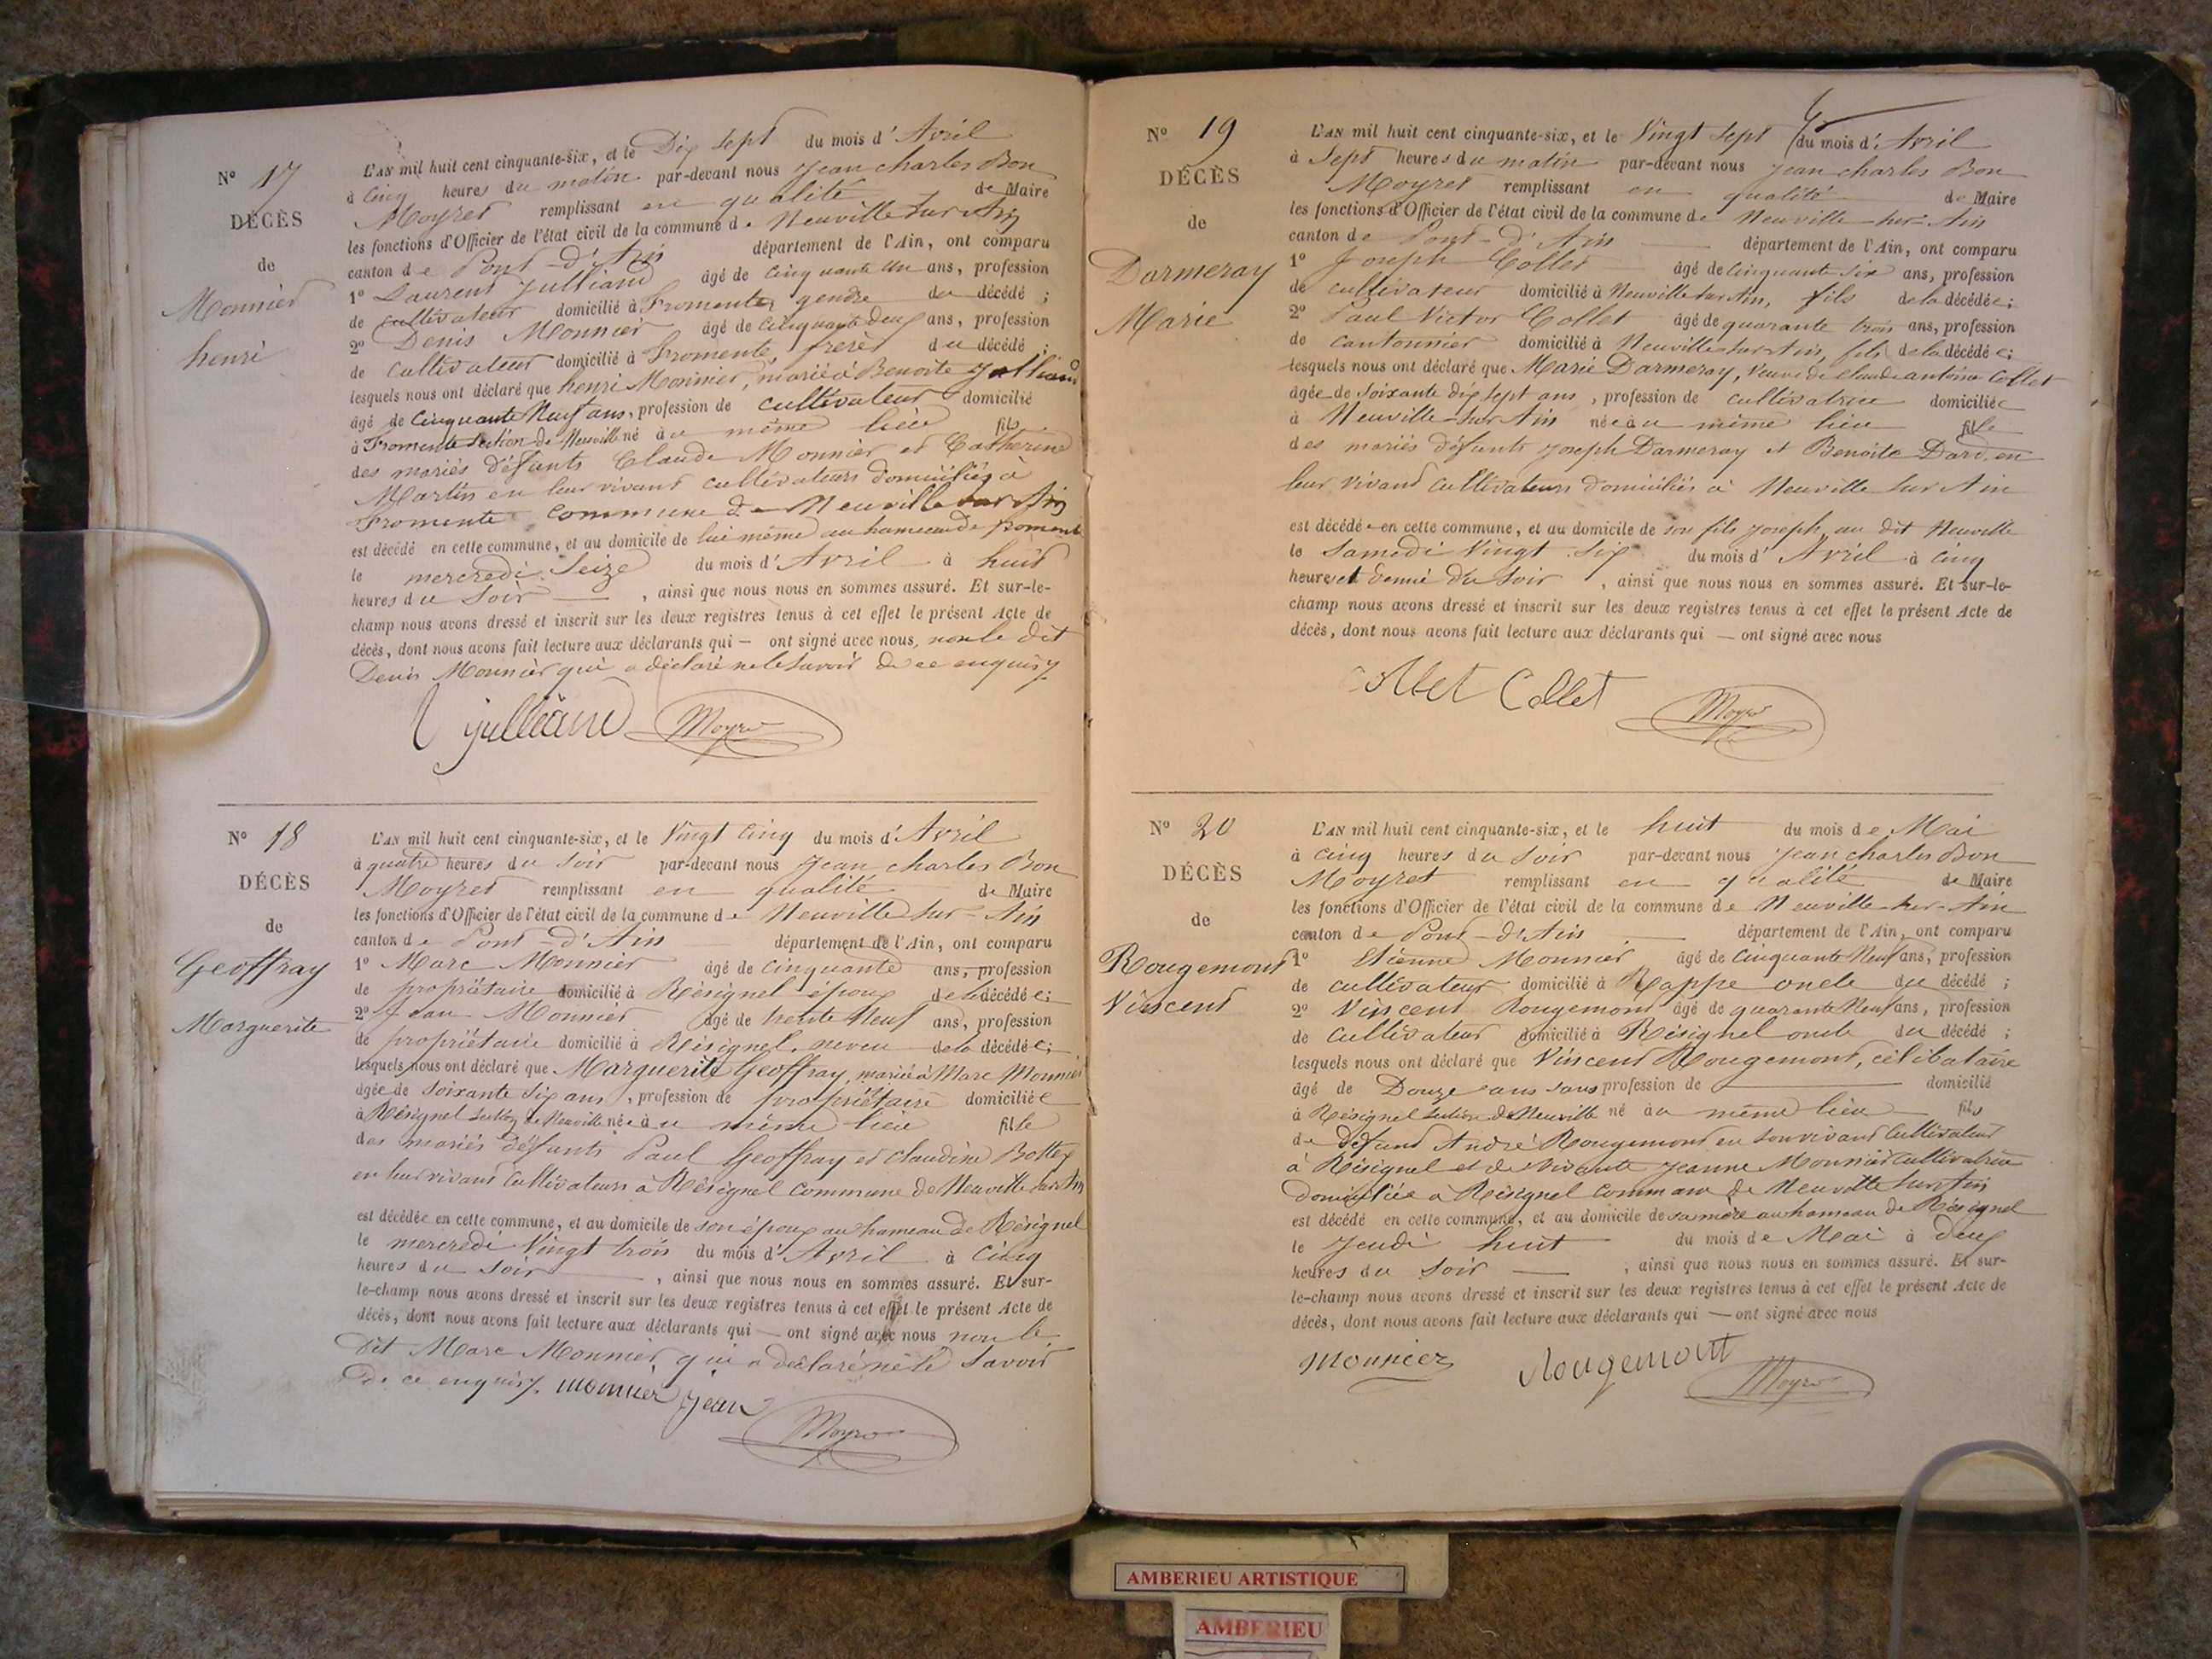 N° 17
DÉCÈS
de
Monnier
henri
L'AN mil huit cent cinquante-six, et le Dix sept du mois d'Avril
à cinq heures du matin par-devant nous Jean charles Bon
Moyret remplissant en qualité de Maire
les fonctions d'Officier de l'état civil de la commune de Neuville sur Ain
canton de Pont-d'Ain département de l'Ain, ont comparu
1° Laurent Julliand âgé de cinquante un ans, profession
de cultivateur domicilié à Fromente, gendre du décédé ;
2° Denis Monnier âgé de cinquante deux ans, profession
de cultivateur domicilié à Fromente, frere du décédé ;
lesquels nous ont déclaré que henri Monnier, marié à Benoite Julliand
âgé de cinquante Neuf ans, profession de cultivateur domicilié
à Fromente section de Neuville né au même lieu fils
des mariés défunts Claude Monnier et Catherine
Martin en leur vivant cultivateurs domiciliés à
Fromente commune de Neuville sur Ain
est décédé en cette commune, et au domicile de lui même au hameau de froment
le mercredi Seize du mois d'Avril à huit
heures du Soir , ainsi que nous nous en sommes assuré. Et sur-le-
champ nous avons dressé et inscrit sur les deux registres tenus à cet effet le présent Acte de
décès, dont nous avons fait lecture aux déclarants qui — ont signé avec nous, non le dit
Denis Monnier qui a déclaré ne le savoir de ce enquis
julliand Moyret
N° 18
DÉCÈS
de
Geoffray
Marguerite
L'AN mil huit cent cinquante-six, et le Vingt cinq du mois d'Avril
à quatre heures du soir par-devant nous Jean charles Bon
Moyret remplissant en qualité de Maire
les fonctions d'Officier de l'état civil de la commune de Neuville sur-Ain
canton de Pont-d'Ain département de l'Ain, ont comparu
1° Marc Monnier âgé de cinquante ans, profession
de propriétaire domicilié à Résignel époux de la décédée ;
2° Jean Monnier âgé de trente Neuf ans, profession
de propriétaire domicilié à Résignel, neveu de la décédée ;
lesquels nous ont déclaré que Marguerite Geoffray, mariée à Marc Monnier
âgée de soixante six ans, profession de propriétaire domiciliée
à Résignel section de Neuville née au même lieu fille
des mariés défunts Paul Geoffray et Claudine Bottex
en leur vivant cultivateurs à Résignel commune de Neuville sur Ain
est décédée en cette commune, et au domicile de son époux au hameau de Résignel
le mercredi Vingt trois du mois d'Avril à cinq
heures du soir , ainsi que nous nous en sommes assuré. Et sur-
le-champ nous avons dressé et inscrit sur les deux registres tenus à cet effet le présent Acte de
décès, dont nous avons fait lecture aux déclarants qui — ont signé avec nous non le
dit Marc Monnier qui a déclaré ne le savoir
de ce enquis monnier jean
Moyret
N° 19
DÉCÈS
de
Darmeray
Marie
L'AN mil huit cent cinquante-six, et le Vingt sept du mois d'Avril
à Sept heures du matin par-devant nous Jean charles Bon
Moyret remplissant en qualité de Maire
les fonctions d'Officier de l'état civil de la commune de Neuville-sur-Ain
canton de Pont-d'Ain département de l'Ain, ont comparu
1° Joseph Collet âgé de cinquante six ans, profession
de cultivateur domicilié à Neuville sur Ain, fils de la décédée ;
2° Paul Victor Collet âgé de quarante trois ans, profession
de cantonnier domicilié à Neuville sur Ain, fils de la décédée ;
lesquels nous ont déclaré que Marie Darmeray, Veuve de Claude antoine Collet
âgée de soixante dix sept ans, profession de cultivatrice domiciliée
à Neuville-sur-Ain née au même lieu fille
des mariés défunts Joseph Darmeray et Benoite Dard en
leur vivant cultivateurs domiciliés à Neuville sur Ain
est décédée en cette commune, et au domicile de son fils Joseph, au dit Neuville
le Samedi Vingt six du mois d'Avril à cinq
heures et demie du soir , ainsi que nous nous en sommes assuré. Et sur-le-
champ nous avons dressé et inscrit sur les deux registres tenus à cet effet le présent Acte de
décès, dont nous avons fait lecture aux déclarants qui — ont signé avec nous
Collet Collet Moyret
N° 20
DÉCÈS
de
Rougemont
Vincent
L'AN mil huit cent cinquante-six, et le huit du mois de Mai
à cinq heures du soir par-devant nous Jean charles Bon
Moyret remplissant en qualité de Maire
les fonctions d'Officier de l'état civil de la commune de Neuville-sur-Ain
canton de Pont-d'Ain département de l'Ain, ont comparu
1° Etienne Monnier âgé de cinquante Neuf ans, profession
de cultivateur domicilié à Rappe oncle du décédé ;
2° Vincent Rougemont âgé de quarante Neuf ans, profession
de cultivateur domicilié à Résignel oncle du décédé ;
lesquels nous ont déclaré que Vincent Rougemont, célibataire
âgé de Douze ans sans profession de domicilié
à Résignel section de Neuville né au même lieu fils
de défunt André Rougemont en son vivant cultivateur
à Résignel et de vivante Jeanne Monnier cultivatrice
domiciliée à Résignel commune de Neuville sur Ain
est décédé en cette commune, et au domicile de sa mère au hameau de Résignel
le Jeudi huit du mois de Mai à deux
heures du soir , ainsi que nous nous en sommes assuré. Et sur-
le-champ nous avons dressé et inscrit sur les deux registres tenus à cet effet le présent Acte de
décès, dont nous avons fait lecture aux déclarants qui — ont signé avec nous
Monnier Rougemont
Moyret
AMBERIEU ARTISTIQUE
AMBERIEU